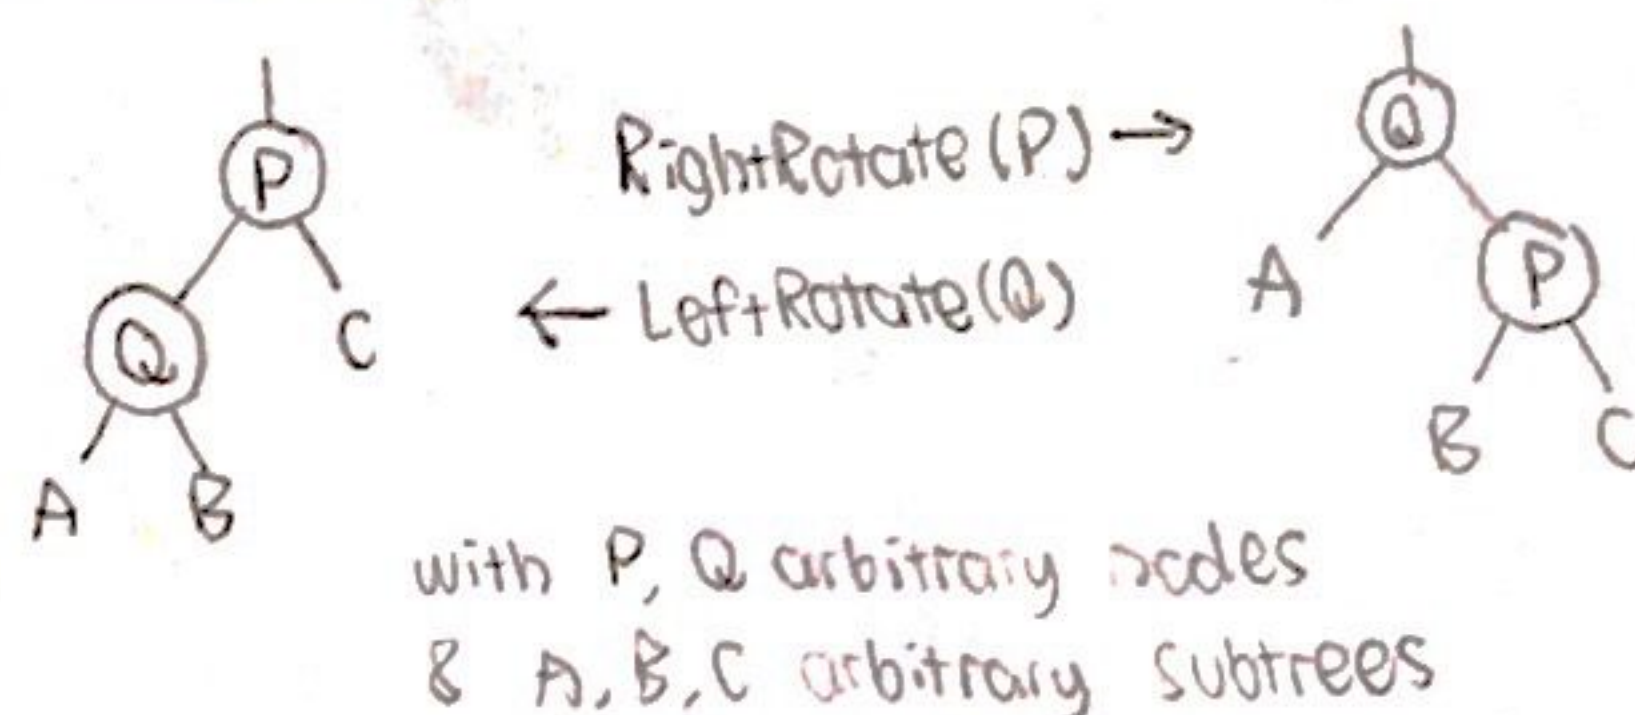 P
Q
C
A B
RightRotate(P) →
← LeftRotate(Q)
Q
A
P
B C
with P, Q arbitrary nodes
& A, B, C arbitrary subtrees